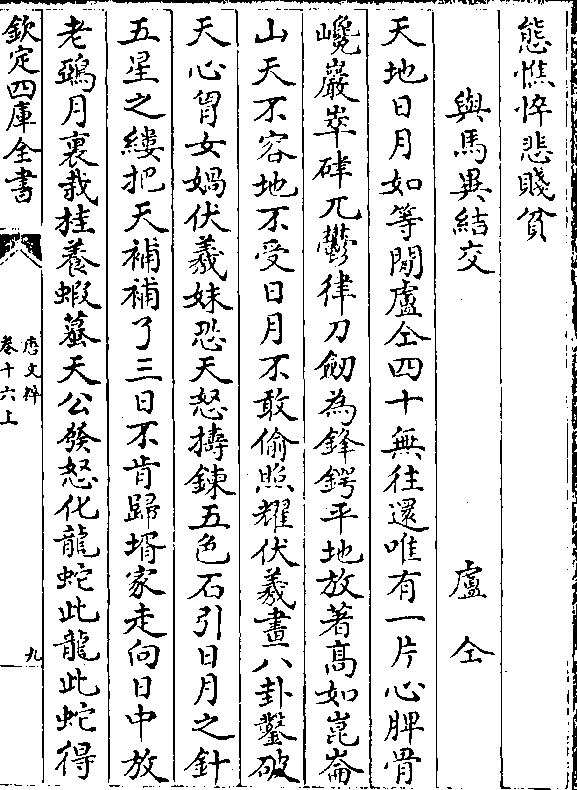 態憔悴悲賤貧
與馬異結交　盧仝
天地日月如等閒盧仝四十無往還唯有一片心脾骨
巉巖崒硉兀鬱律刀劒為鋒鍔平地放著髙如崑崙
山天不容地不受日月不敢偷照耀伏羲畫八卦鑿破
天心胷女媧伏羲妹恐天怒擣鍊五色石引日月之針
五星之縷把天補補了三日不肯歸壻家走向日中放
老鵶月裏栽桂養蝦蟇天公發怒化龍蛇此龍此蛇得
欽定四庫全書
唐文粹
卷十六上
九